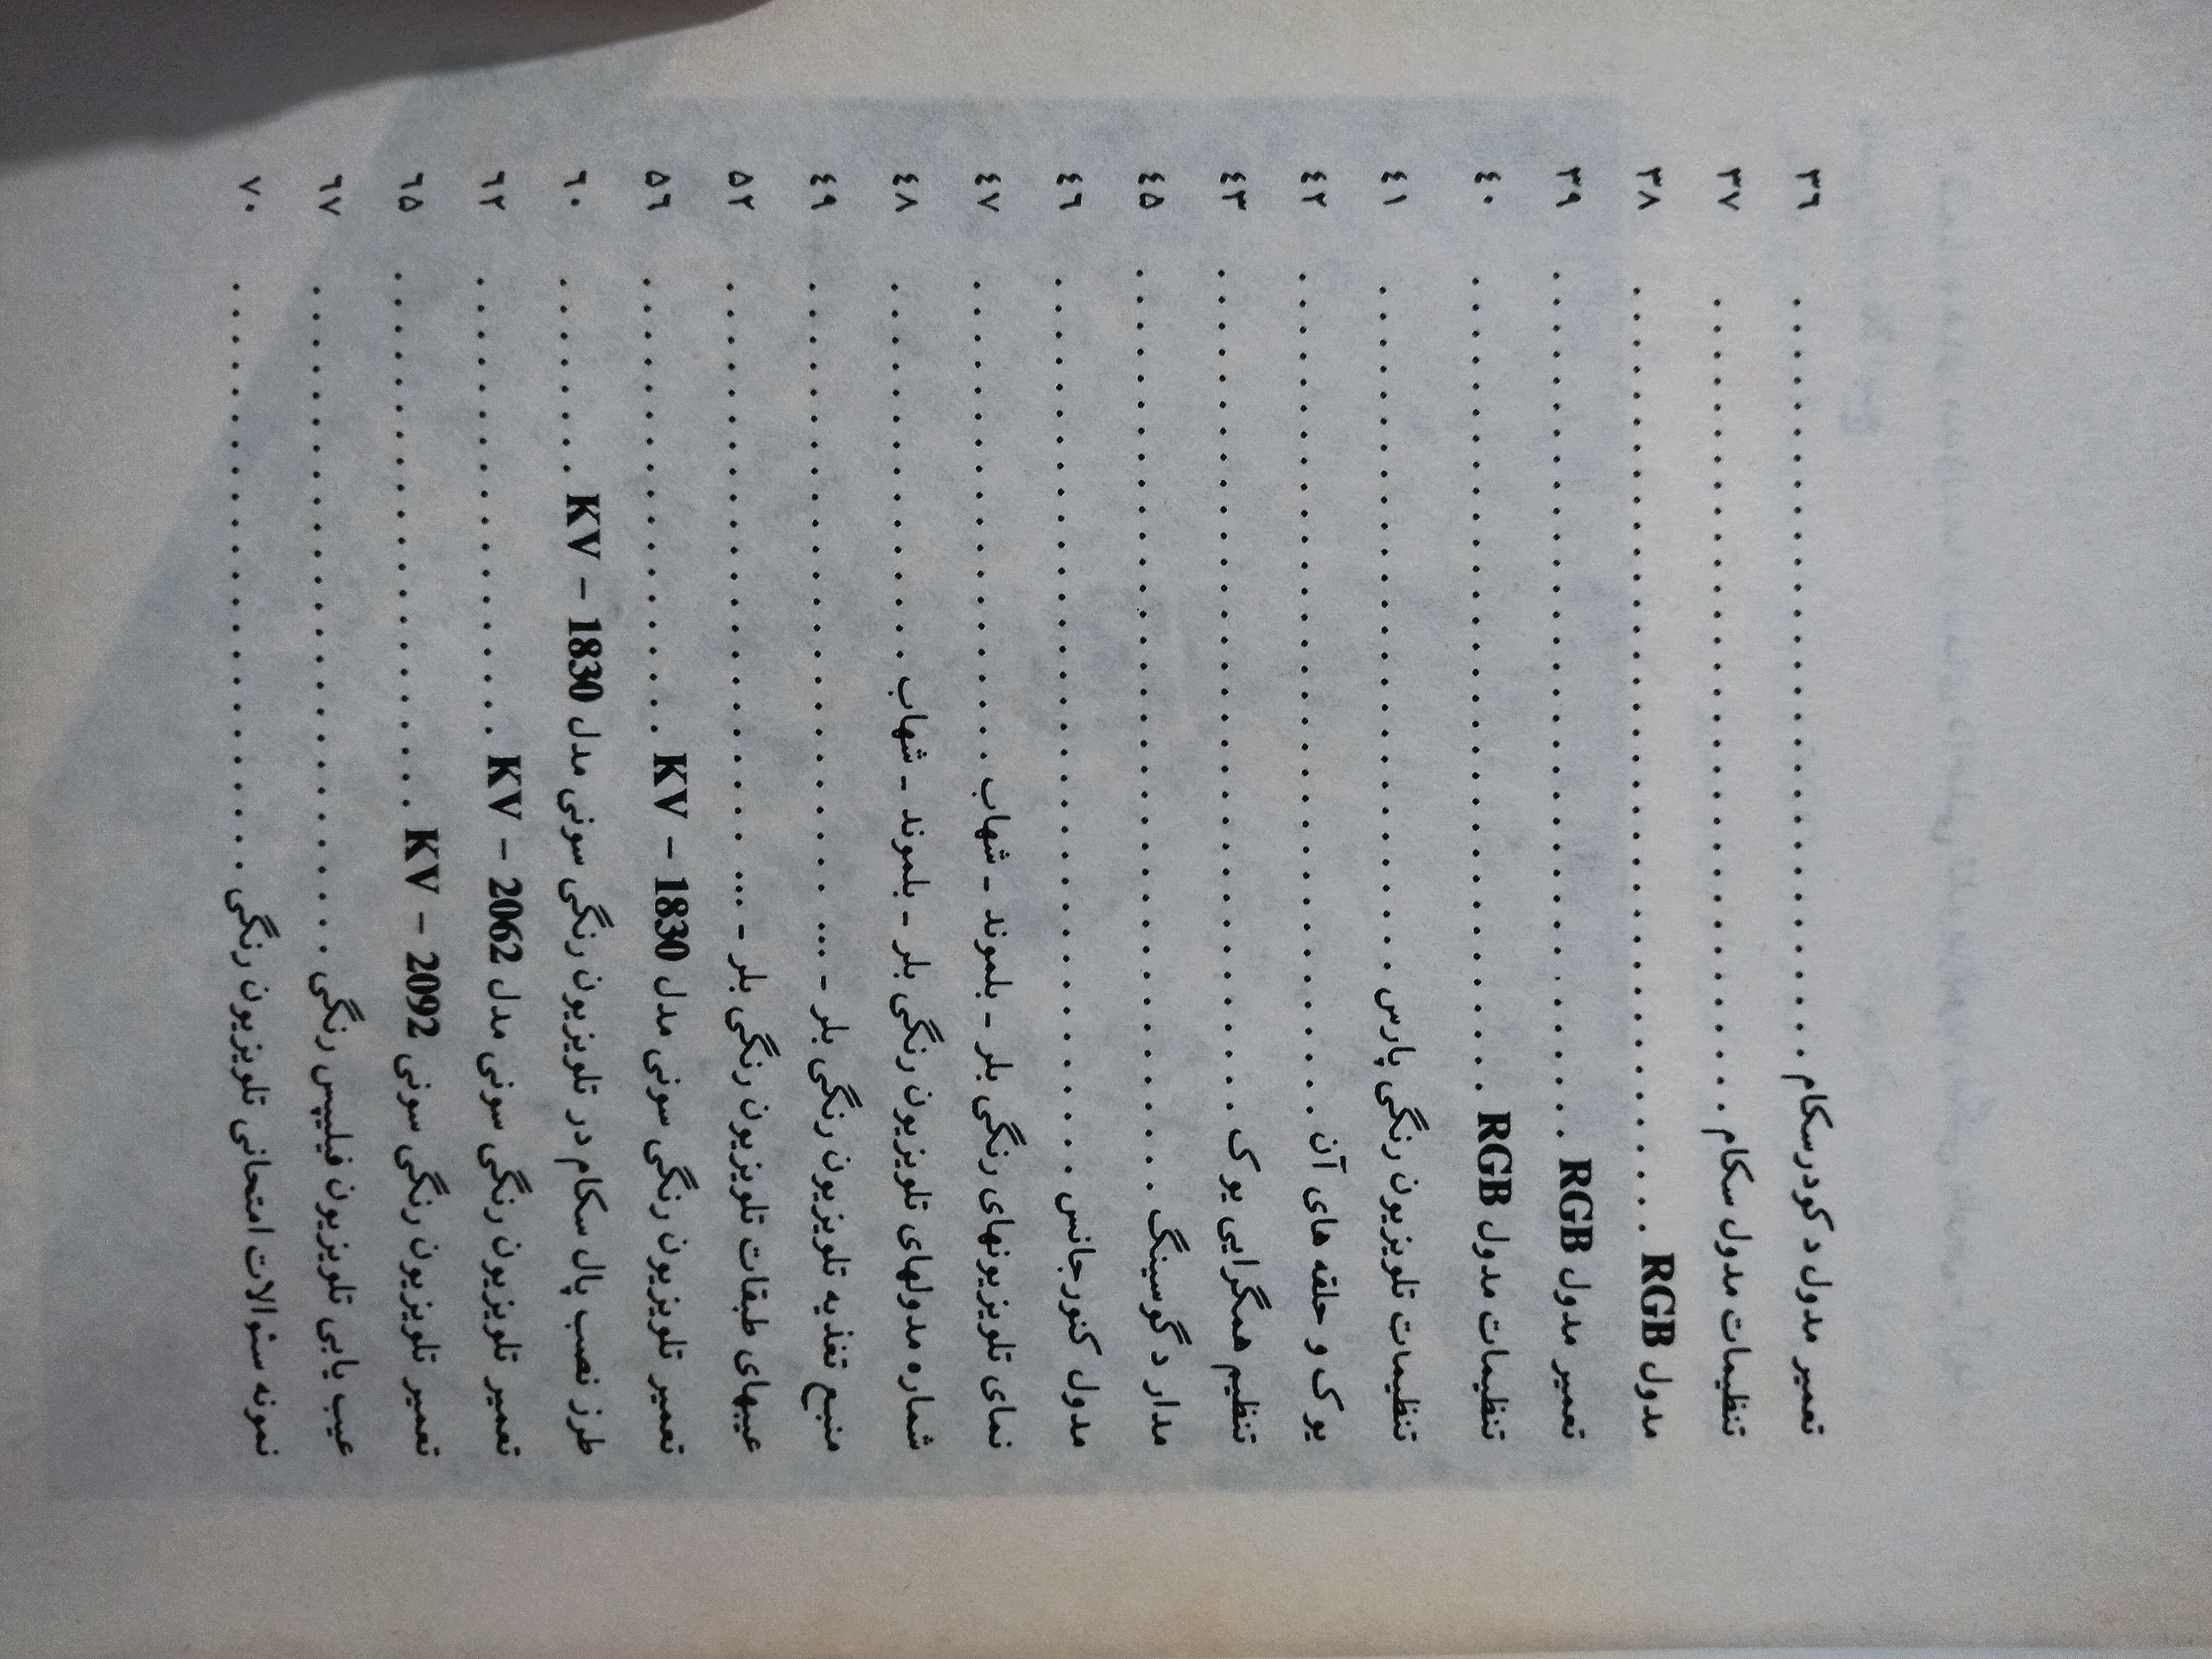 تعمیر مدول د کودر سکام . . . . . . . . . . ۳۶
تنظیمات مدول سکام . . . . . . . . . . ۳۷
مدول RGB . . . . . . . . . . ۳۸
تعمیر مدول RGB . . . . . . . . . . ۳۹
تنظیمات مدول RGB . . . . . . . . . . ٤۰
تنظیمات تلویزیون رنگی پارس . . . . . . . . . . ٤۱
یوک و حلقه های آن . . . . . . . . . . ٤۲
تنظیم همگرایی یوک . . . . . . . . . . ٤۳
مدار دگوسینگ . . . . . . . . . . ٤۵
مدول کنورجانس . . . . . . . . . . ٤۶
نمای تلویزیونهای رنگی بلر - بلموند - شهاب . . . . . . . . . . ٤۷
شماره مدولهای تلویزیون رنگی بلر - بلموند - شهاب . . . . . . . . . . ٤۸
منبع تغذیه تلویزیون رنگی بلر - ... . . . . . . . . . . ٤۹
عیبهای طبقات تلویزیون رنگی بلر - ... . . . . . . . . . . ۵۲
تعمیر تلویزیون رنگی سونی مدل KV – 1830 . . . . . . . . . . ۵۶
طرز نصب پال سکام در تلویزیون رنگی سونی مدل KV – 1830 . . . . . . . . ۶۰
تعمیر تلویزیون رنگی سونی مدل KV – 2062 . . . . . . . . . . ۶۲
تعمیر تلویزیون رنگی سونی KV – 2092 . . . . . . . . . . ۶۵
عیب یابی تلویزیون فیلیپس رنگی . . . . . . . . . . ۶۷
نمونه سئوالات امتحانی تلویزیون رنگی . . . . . . . . . . ۷۰